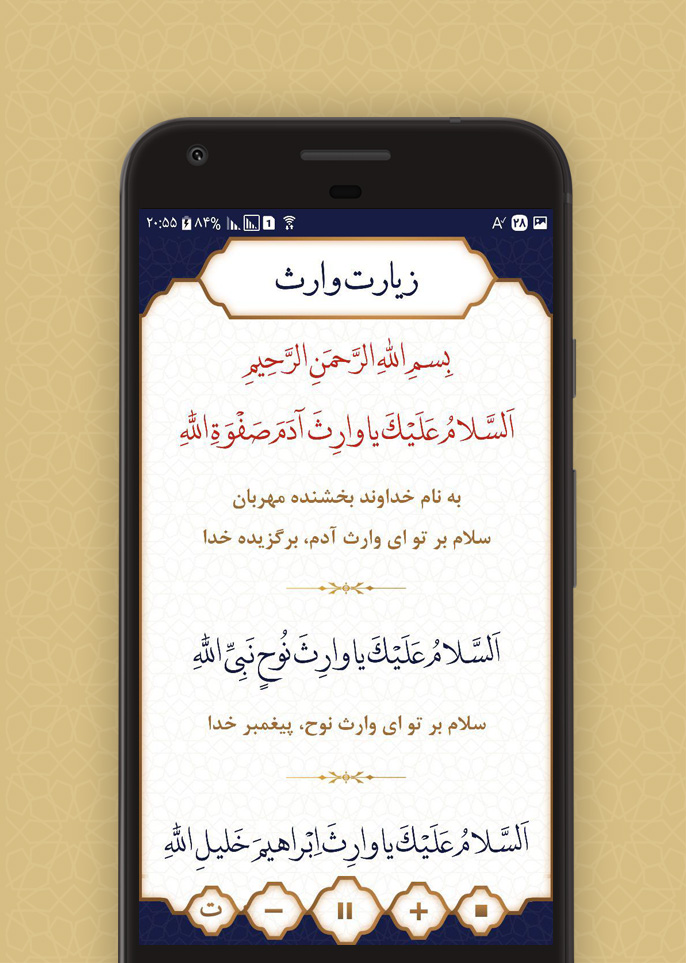 ۲۰:۵۵ ۸۴% 1 A ۲۸
زیارت وارث
بِسمِ اللهِ الرَّحمَنِ الرَّحِیمِ
اَلسَّلامُ عَلَیْكَ یا وارِثَ آدَمَ صَفْوَةِ اللهِ
به نام خداوند بخشنده مهربان
سلام بر تو ای وارث آدم، برگزیده خدا
اَلسَّلامُ عَلَیْكَ یا وارِثَ نُوحٍ نَبِیِّ اللهِ
سلام بر تو ای وارث نوح، پیغمبر خدا
اَلسَّلامُ عَلَیْكَ یا وارِثَ اِبْراهیمَ خَلیلِ اللهِ
ت